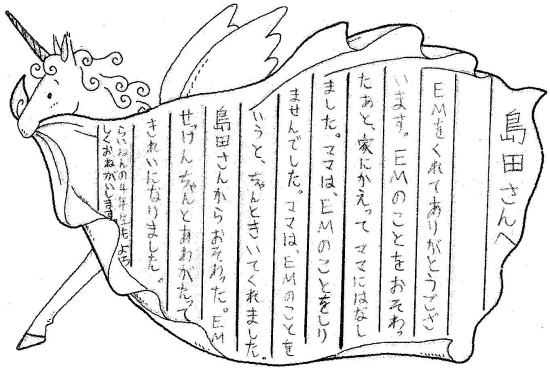 島田さんへ
EMをくれてありがとうござ
います。EMのことをおそわっ
たあと、家にかえってママにはなし
ました。ママは、EMのことをしり
ませんでした。ママは、EMのことを
いうと、ちゃんときいてくれました。
島田さんからおそわった。EM
せっけんちゃんとあわがたって
きれいになりました。
らいねんの4年生も、よろ
しくおねがいします。